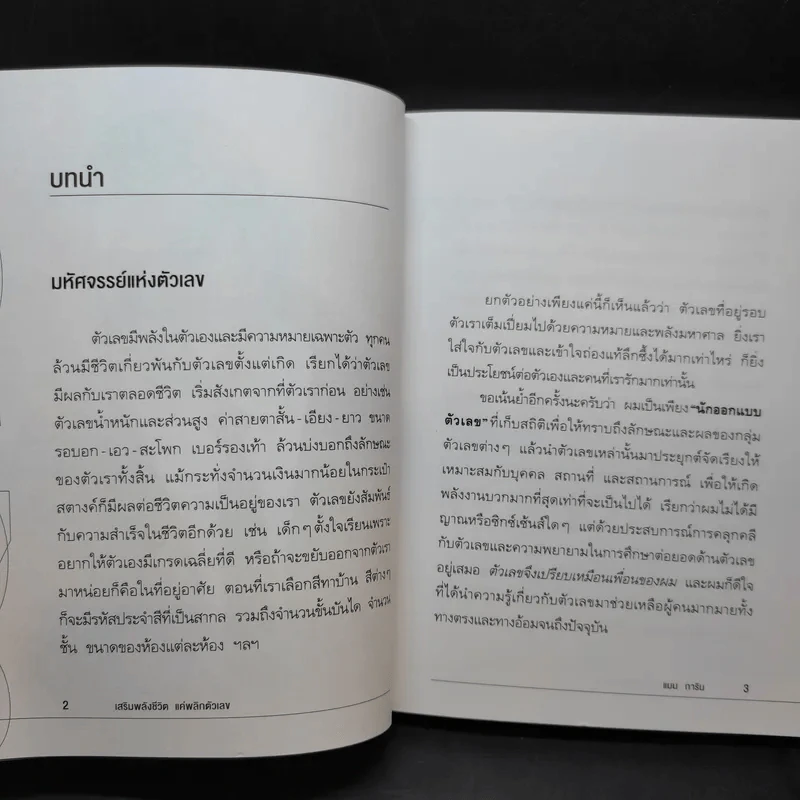 บทนำ
มหัศจรรย์แห่งตัวเลข
ตัวเลขมีพลังในตัวเองและมีความหมายเฉพาะตัว ทุกคน
ล้วนมีชีวิตเกี่ยวพันกับตัวเลขตั้งแต่เกิด เรียกได้ว่าตัวเลข
มีผลกับเราตลอดชีวิต เริ่มสังเกตจากที่ตัวเราก่อน อย่างเช่น
ตัวเลขน้ำหนักและส่วนสูง ค่าสายตาสั้น-เอียง-ยาว ขนาด
รอบอก-เอว-สะโพก เบอร์รองเท้า ล้วนบ่งบอกถึงลักษณะ
ของตัวเราทั้งสิ้น แม้กระทั่งจำนวนเงินมากน้อยในกระเป๋า
สตางค์ก็มีผลต่อชีวิตความเป็นอยู่ของเรา ตัวเลขยังสัมพันธ์
กับความสำเร็จในชีวิตอีกด้วย เช่น เด็กๆ ตั้งใจเรียนเพราะ
อยากให้ตัวเองมีเกรดเฉลี่ยที่ดี หรือถ้าจะขยับออกจากตัวเรา
มาหน่อยก็คือในที่อยู่อาศัย ตอนที่เราเลือกสีทาบ้าน สีต่างๆ
ก็จะมีรหัสประจำสีที่เป็นสากล รวมถึงจำนวนขั้นบันได จำนวน
ชั้น ขนาดของห้องแต่ละห้อง ฯลฯ
2 เสริมพลังชีวิต แค่พลิกตัวเลข
ยกตัวอย่างเพียงแค่นี้ก็เห็นแล้วว่า ตัวเลขที่อยู่รอบ
ตัวเราเต็มเปี่ยมไปด้วยความหมายและพลังมหาศาล ยิ่งเรา
ใส่ใจกับตัวเลขและเข้าใจถ่องแท้ลึกซึ้งได้มากเท่าไหร่ ก็ยิ่ง
เป็นประโยชน์ต่อตัวเองและคนที่เรารักมากเท่านั้น
ขอเน้นย้ำอีกครั้งนะครับว่า ผมเป็นเพียง “นักออกแบบ
ตัวเลข” ที่เก็บสถิติเพื่อให้ทราบถึงลักษณะและผลของกลุ่ม
ตัวเลขต่างๆ แล้วนำตัวเลขเหล่านั้นมาประยุกต์จัดเรียงให้
เหมาะสมกับบุคคล สถานที่ และสถานการณ์ เพื่อให้เกิด
พลังงานบวกมากที่สุดเท่าที่จะเป็นไปได้ เรียกว่าผมไม่ได้มี
ญาณหรือซิกซ์เซ้นส์ใดๆ แต่ด้วยประสบการณ์การคลุกคลี
กับตัวเลขและความพยายามในการศึกษาต่อยอดด้านตัวเลข
อยู่เสมอ ตัวเลขจึงเปรียบเหมือนเพื่อนของผม และผมก็ดีใจ
ที่ได้นำความรู้เกี่ยวกับตัวเลขมาช่วยเหลือผู้คนมากมายทั้ง
ทางตรงและทางอ้อมจนถึงปัจจุบัน
แมน การิน 3